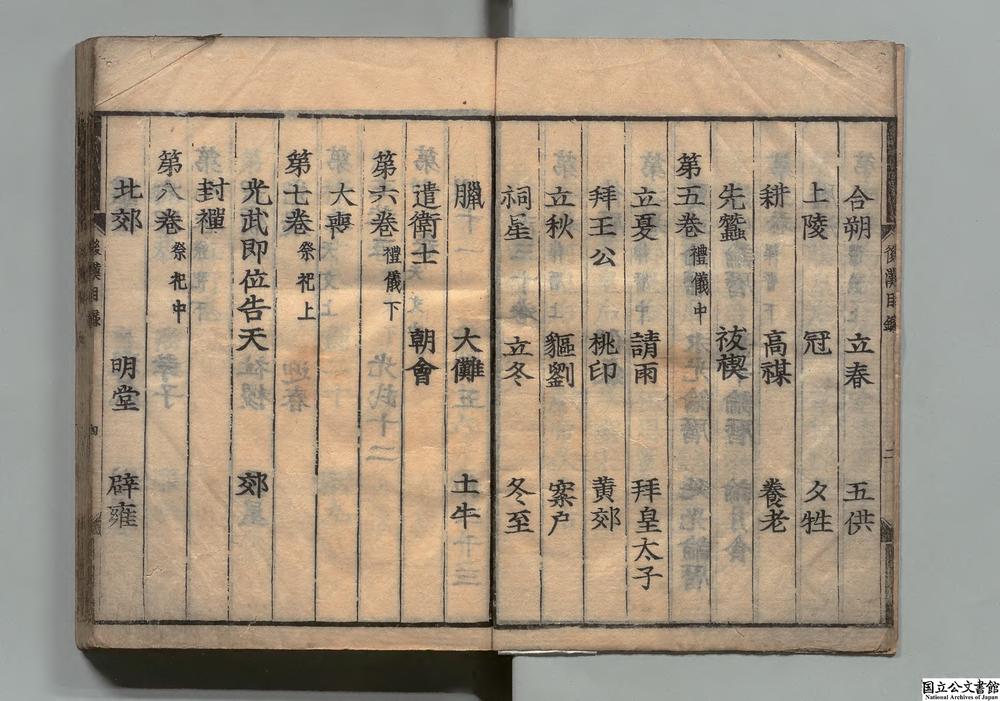 合朔 立春 五供
上陵 冠 夕牲
耕 高禖 養老
先蠶 祓禊
第五卷 禮儀中
立夏 請雨 拜皇太子
拜王公 桃印 黃郊
立秋 貙劉 案户
祠星 立冬 冬至
臘 大儺 土牛
遣衛士 朝會
第六卷 禮儀下
大喪
第七卷 祭祀上
光武即位告天 郊
封禪
第八卷 祭祀中
北郊 明堂 辟雍
後漢目錄
二
後漢目錄
四
国立公文書館
National Archives of Japan